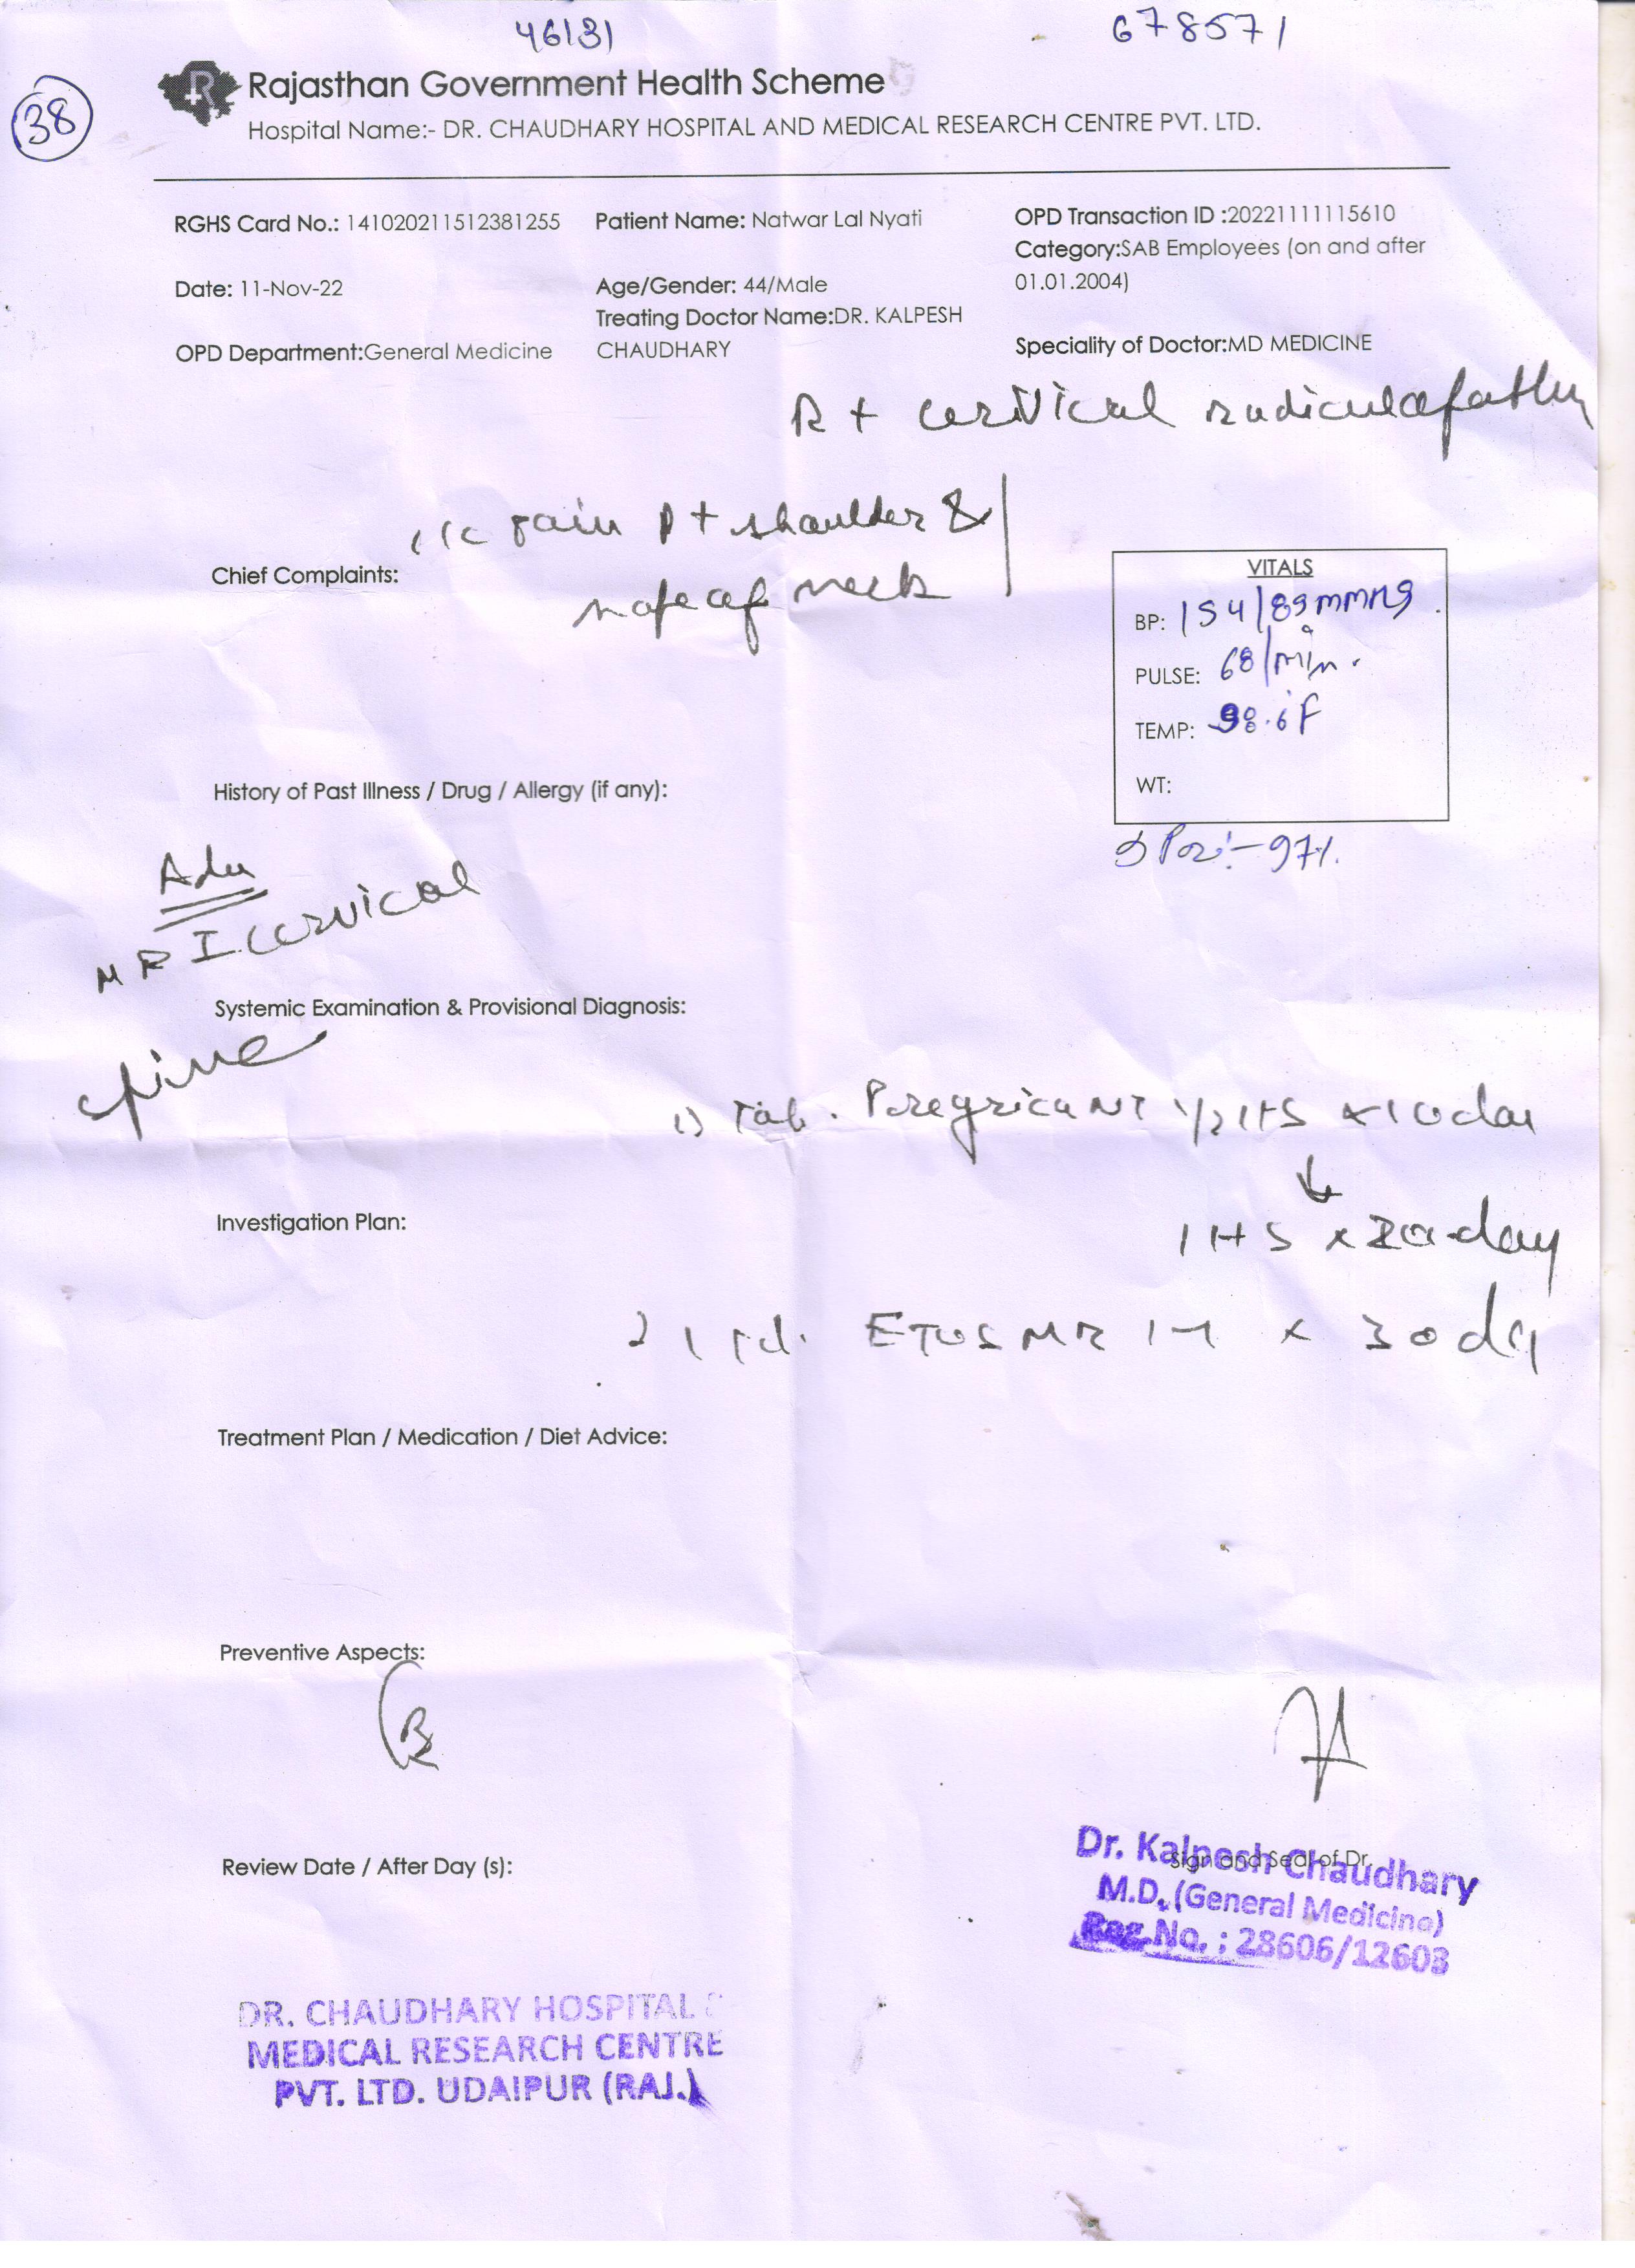 46131
678571
38
Rajasthan Government Health Scheme
Hospital Name:- DR. CHAUDHARY HOSPITAL AND MEDICAL RESEARCH CENTRE PVT. LTD.
RGHS Card No.: 141020211512381255 Patient Name: Natwar Lal Nyati OPD Transaction ID :20221111115610
Category:SAB Employees (on and after
01.01.2004)
Date: 11-Nov-22 Age/Gender: 44/Male
Treating Doctor Name:DR. KALPESH
CHAUDHARY
OPD Department:General Medicine Speciality of Doctor:MD MEDICINE
Rt cervical radiculopathy
c/c pain Rt shoulder &
nape of neck
Chief Complaints:
VITALS
BP: 154/89mmHg
PULSE: 68/min.
TEMP: 98.6°F
WT:
SPO2:-97%
History of Past Illness / Drug / Allergy (if any):
Adv
MRI cervical
Systemic Examination & Provisional Diagnosis:
spine
1) Tab. NT 1/2 HS x 10 day
↓
1 HS x 20 day
Investigation Plan:
2) ETOS MR 1-1 x 30 day
Treatment Plan / Medication / Diet Advice:
Preventive Aspects:
Review Date / After Day (s):
Sign and Seal of Dr.
Dr. Kalpesh Chaudhary
M.D. (General Medicine)
Reg.No. : 28606/12603
DR. CHAUDHARY HOSPITAL &
MEDICAL RESEARCH CENTRE
PVT. LTD. UDAIPUR (RAJ.)